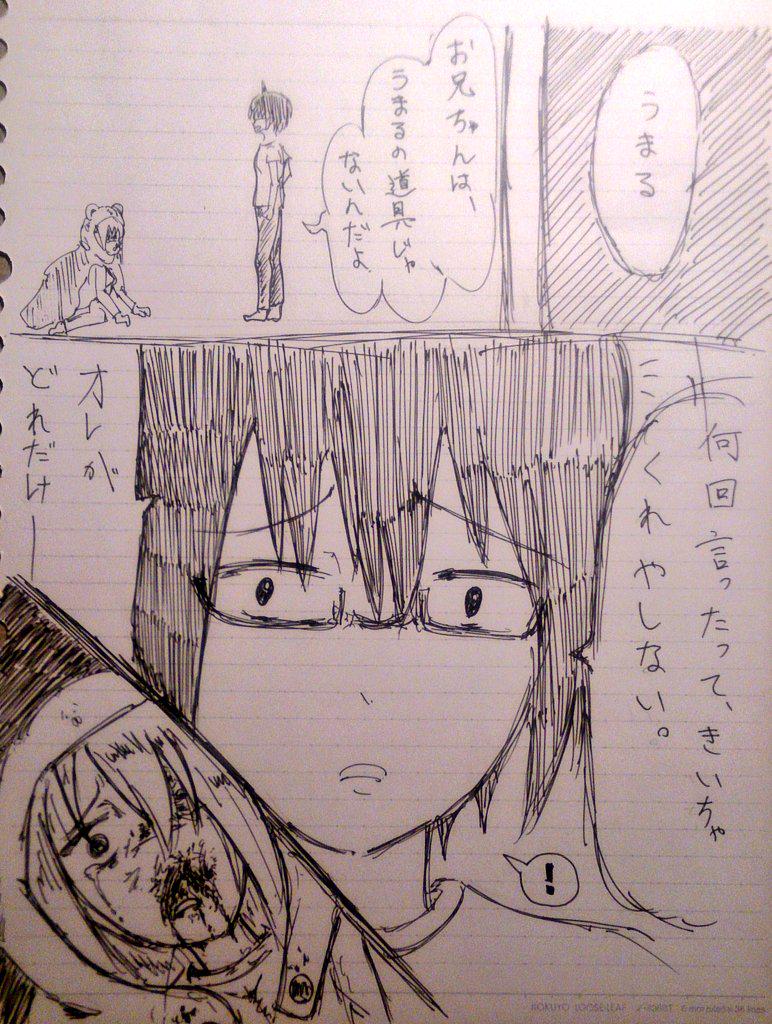 うまる
お兄ちゃんは、
うまるの道具じゃ
ないんだよ
何回言ったって、きいちゃ
くれやしない。
!
オレが
どれだけー
KOKUYO LOOSE-LEAF